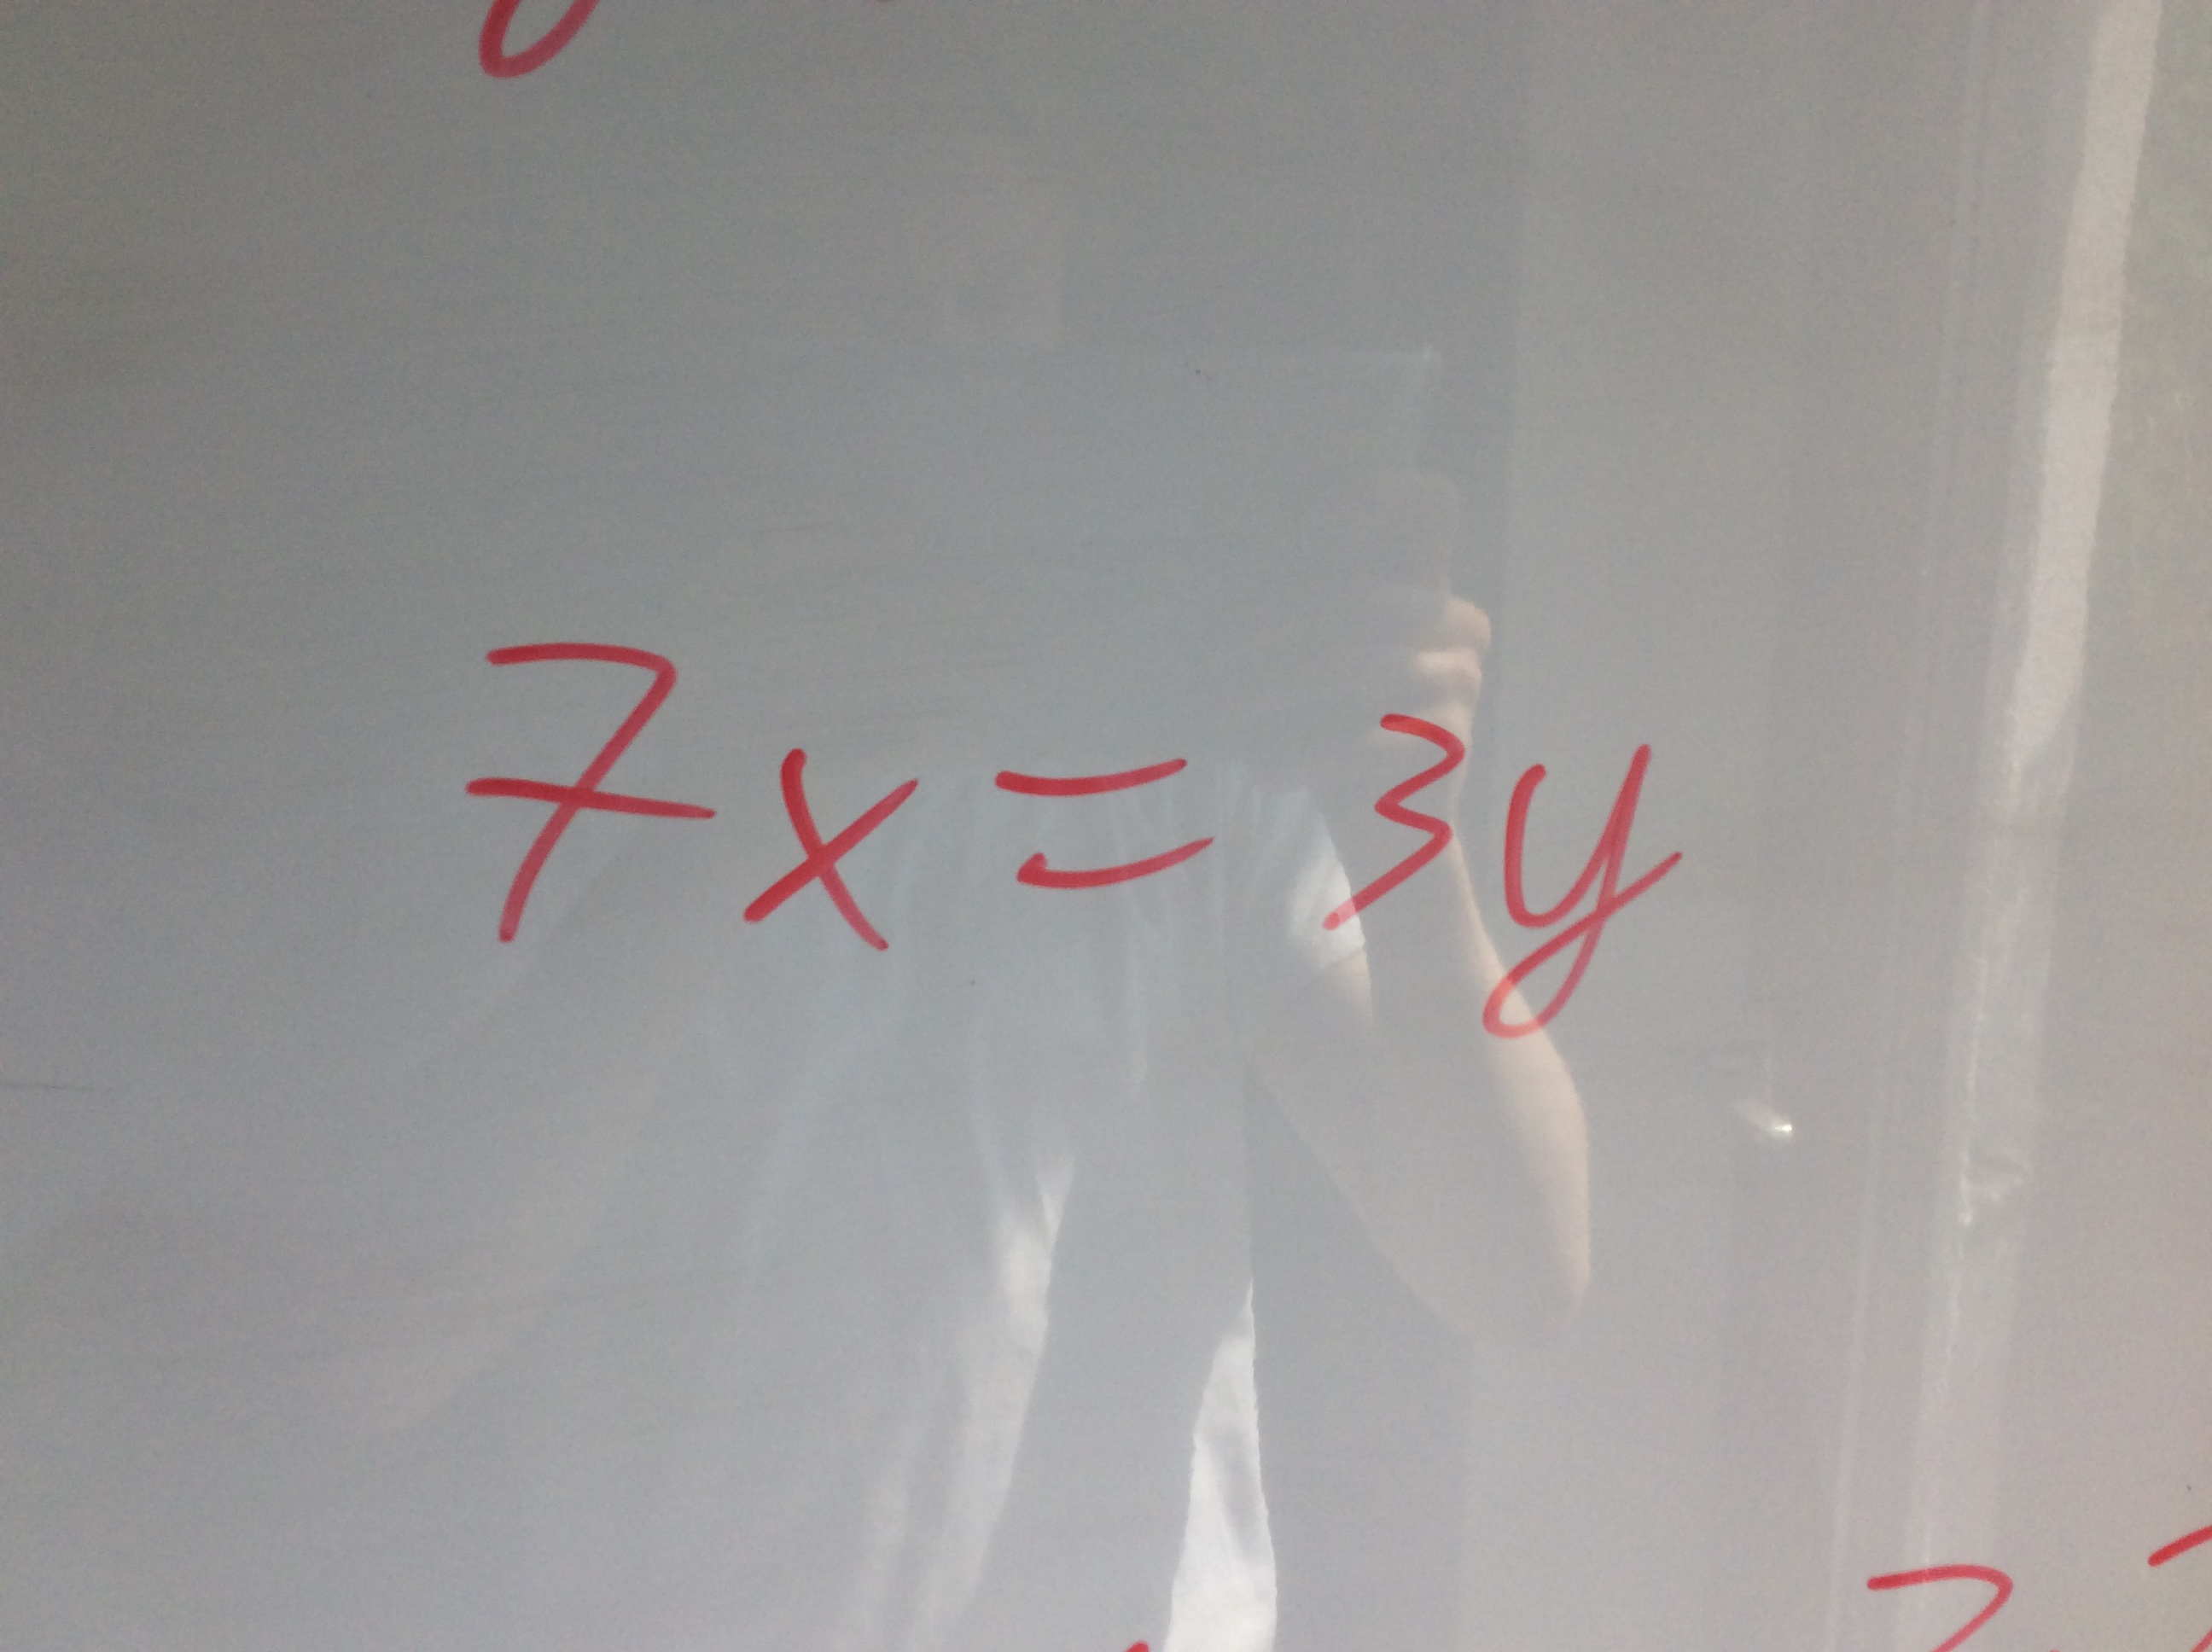 7x = 3y